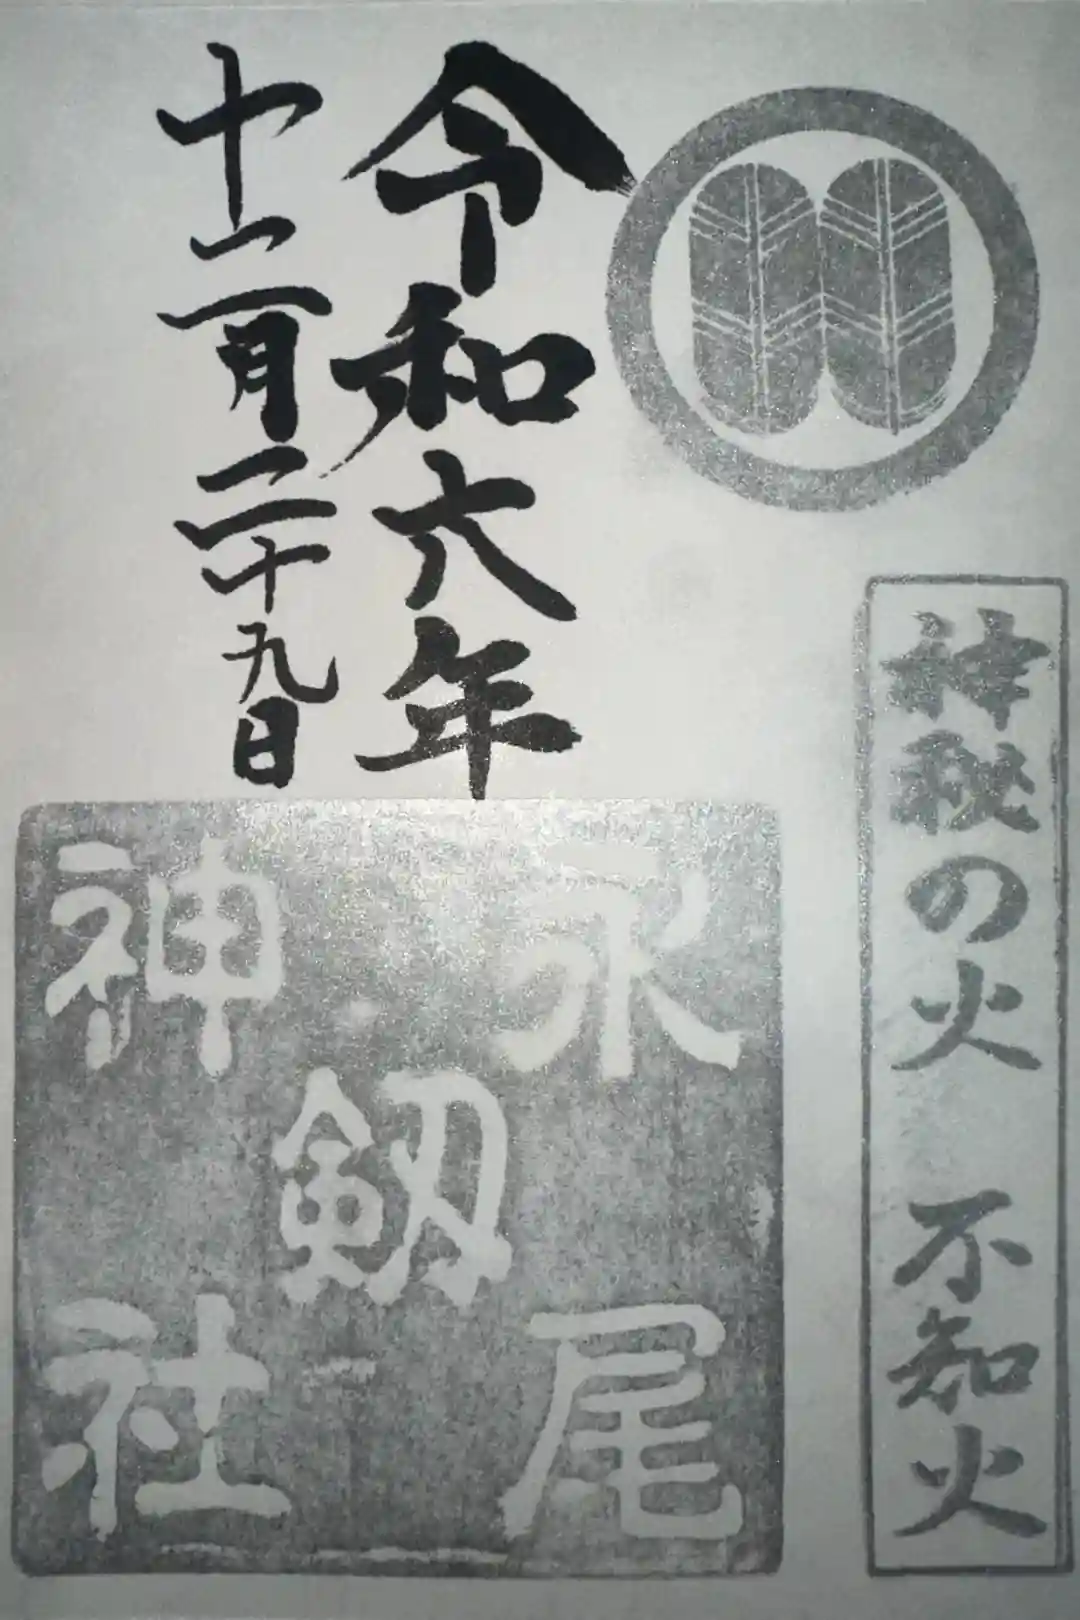 神秘の火 不知火
令和六年
十一月二十九日
永尾
剱
神社